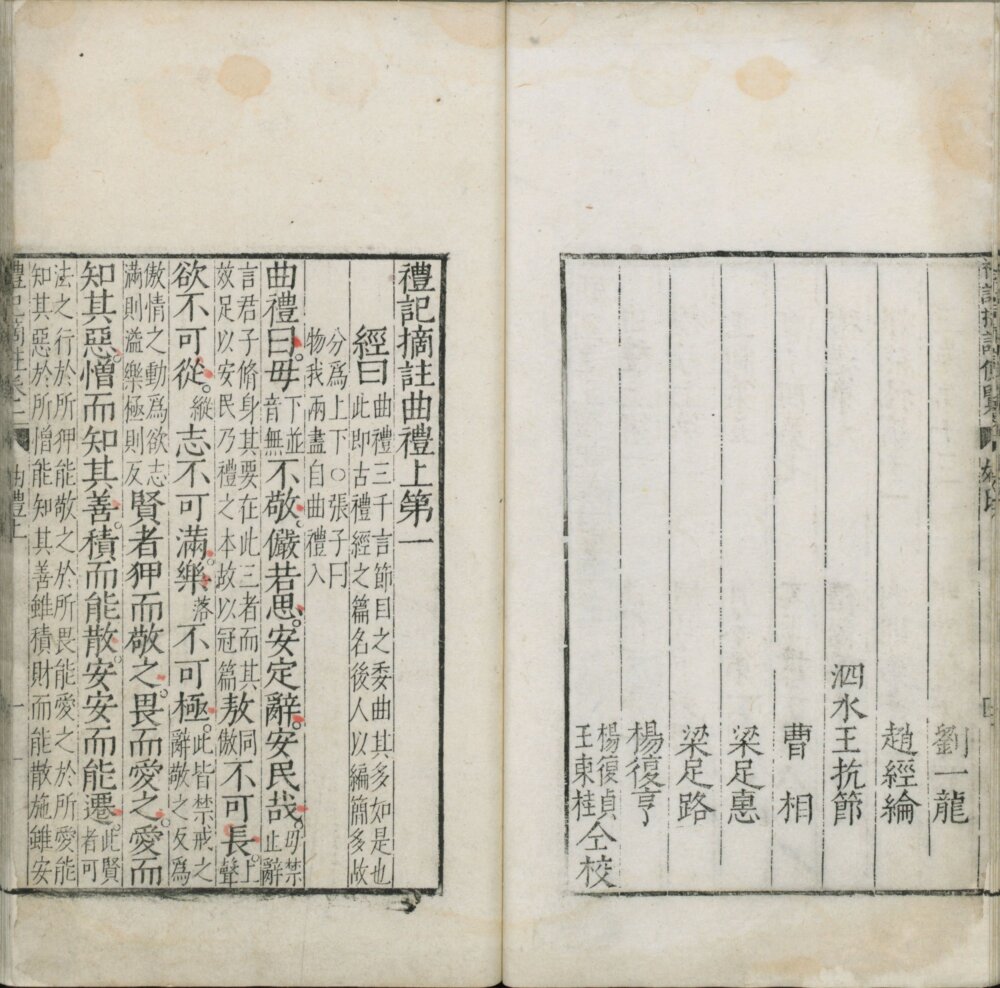 劉一龍
趙經綸
泗水王抗節
曹相
梁足惪
梁足路
楊復亨
楊復貞
王東桂
仝校
禮記摘註曲禮上第一
經曰曲禮三千言節目之委曲其多如是也
此即古禮經之篇名後人以編簡多故
分爲上下○張子曰
物我兩盡自曲禮入
曲禮曰毋音無下並不敬儼若思安定辭安民哉毋禁止辭
言君子脩身其要在此三者而其
效足以安民乃禮之本故以冠篇敖同傲不可長上聲
欲不可從縱志不可滿樂落不可極此皆禁戒之
辭敬之反爲
傲情之動爲欲志
滿則溢樂極則反賢者狎而敬之畏而愛之愛而
知其惡憎而知其善積而能散安安而能遷此賢
者可
法之行於所狎能敬之於所畏能愛之於所愛能
知其惡於所憎能知其善雖積財而能散施雖安
禮記摘註卷一 曲禮上 一